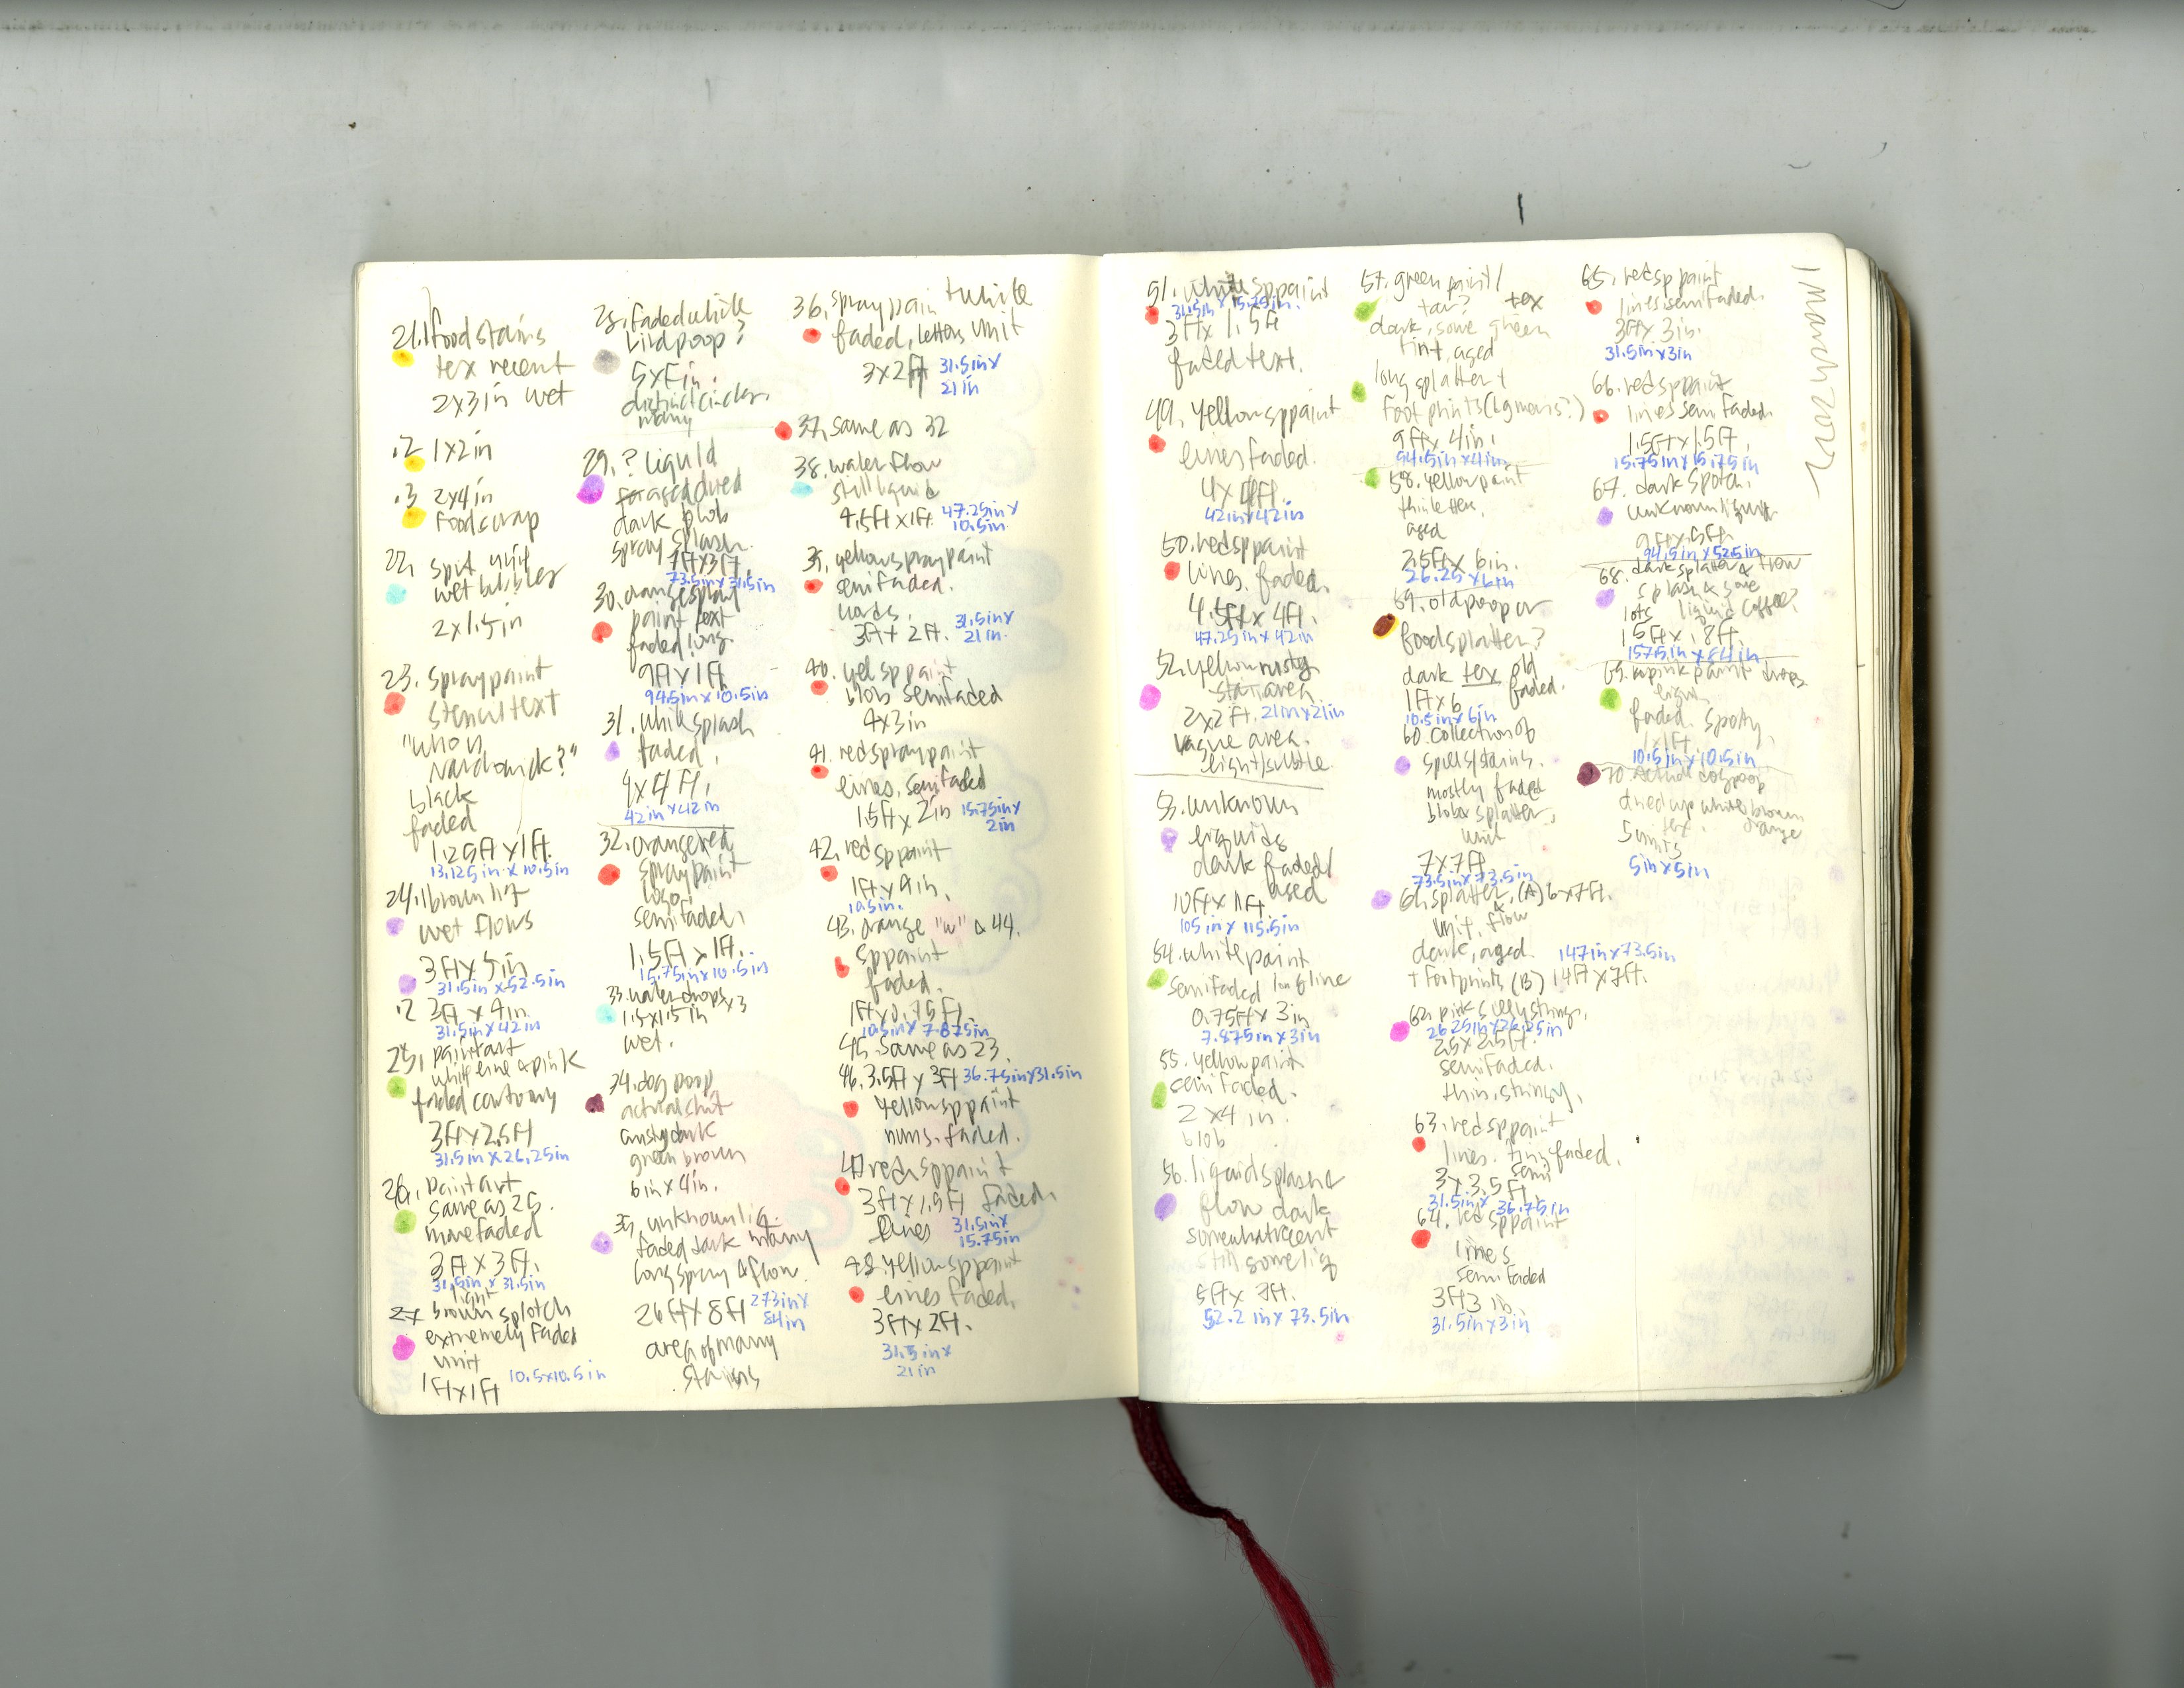 21.1 food stains
tex recent
2x3in wet
.2 1x2in
.3 2x4in
food scrap
22. spit unit
wet bubbles
2x1.5in
23. Spray paint
stencil text
"who is
Nardowick?"
black
faded
1.25ft x 1ft.
13.125in x 10.5in
24.1 brown liq
wet flows
3ft x 5in
31.5in x 52.5in
.2 3ft x 4in.
31.5in x 42in
25. paint art
white line & pink
faded
3ft x 2.5ft
31.5in x 26.25in
26. Paint art
same as 25.
more faded
3ft x 3ft.
31.5in x 31.5in
light
27 brown splotch
extremely faded
unit
1ft x 1ft 10.5x10.5in
28. faded white
bird poop?
5x5in.
distinct circles,
many
29. ? liquid
dark blob
spray splash.
7ft x 3ft
73.5in x 31.5in
30. orange spray
paint text
faded long.
9ft x 1ft
94.5in x 10.5in
31. white splash
faded.
4x4ft.
42in x 42in
32. orange red
spray paint
logo.
semifaded.
1.5ft x 1ft.
15.75in x 10.5in
33. water drops x3
1.5x1.5in
wet.
34. dog poop
actual shit
crusty dark
green brown
6in x 4in.
35. unknown liq.
faded dark many
long spray & flow.
26ft x 8ft 273in x
84in
area of many
stains
36. spray paint white
faded, letters unit
3x2ft 31.5in x
21in
37. same as 32
38. water flow
still liquid
4.5ft x 1ft 47.25in x
10.5in
39. yellow spray paint
semifaded.
words.
3ft x 2ft. 31.5in x
21in.
40. yel sp paint
blob semifaded
4x3in
41. red spray paint
lines, semifaded
1.5ft x 2in 15.75in x
2in
42. red sp paint
1ft x 4in.
10.5in.
43. orange "w" & 44.
sp paint
faded.
1ft x 0.75ft
10.5in x 7.875in
45. same as 23.
46. 3.5ft x 3ft 36.75in x 31.5in
yellow sp paint
nums. faded.
47 red sp paint
3ft x 1.5ft faded.
lines 31.5in x
15.75in
48. yellow sp paint
lines faded.
3ft x 2ft.
31.5in x
21in
51. white sp paint
31.5in x 15.75in.
3ft x 1.5ft
faded text.
49. yellow sp paint
lines faded.
4x4ft.
42in x 42in
50. red sp paint
lines. faded.
4.5ft x 4ft.
47.25in x 42in
52. yellow rusty
stain area
2x2ft. 21in x 21in
vague area.
light/subtle.
53. unknown
liquids
dark faded/
aged
10ft x 11ft.
105in x 115.5in
54. white paint
semifaded long line
0.75ft x 3in
7.875in x 3in
55. yellow paint
semifaded.
2x4in.
blob
56. liquid splash &
flow dark
somewhat recent
still some liq
5ft x 7ft.
52.2in x 73.5in
57. green paint/
tar? tex
dark, some green
tint, aged
long splatter +
footprints
9ft x 4in.
94.5in x 4in
58. yellow paint
thin letters,
aged
2.5ft x 6in.
26.25 x 6in
59. old poop or
food splatter?
dark tex old
faded.
1ft x 6
10.5in x 6in
60. collection of
spills/stains.
mostly faded
blobs splatter,
unit
7x7ft
73.5in x 73.5in
61. splatter, (A) 6x7ft.
&
unit. flow
dark, aged. 147in x 73.5in
+ footprints (B) 14ft x 7ft.
62. pink silly string,
26.25in x 26.25in
2.5x2.5ft.
semifaded.
thin, stringy.
63. red sp paint
lines. tiny faded.
semi
3x3.5ft
31.5in x 36.75in
64. red sp paint
lines
semifaded
3ft 3in.
31.5in x 3in
65. red sp paint
lines semifaded.
3ft x 3in.
31.5in x 3in
66. red sp paint
lines semifaded.
1.5ft x 1.5ft.
15.75in x 15.75in
67. dark splotch.
unknown liquid
9ft x 5ft
94.5in x 52.5in
68. dark splatter & flow
splash & some
lots liquid coffee?
15ft x 8ft.
157.5in x 84in
69. pink paint drops
light
faded. Spotty.
1x1ft.
10.5in x 10.5in
70. Actual dog poop
dried up white brown
tex. orange
5 units
5in x 5in
1 March 2022